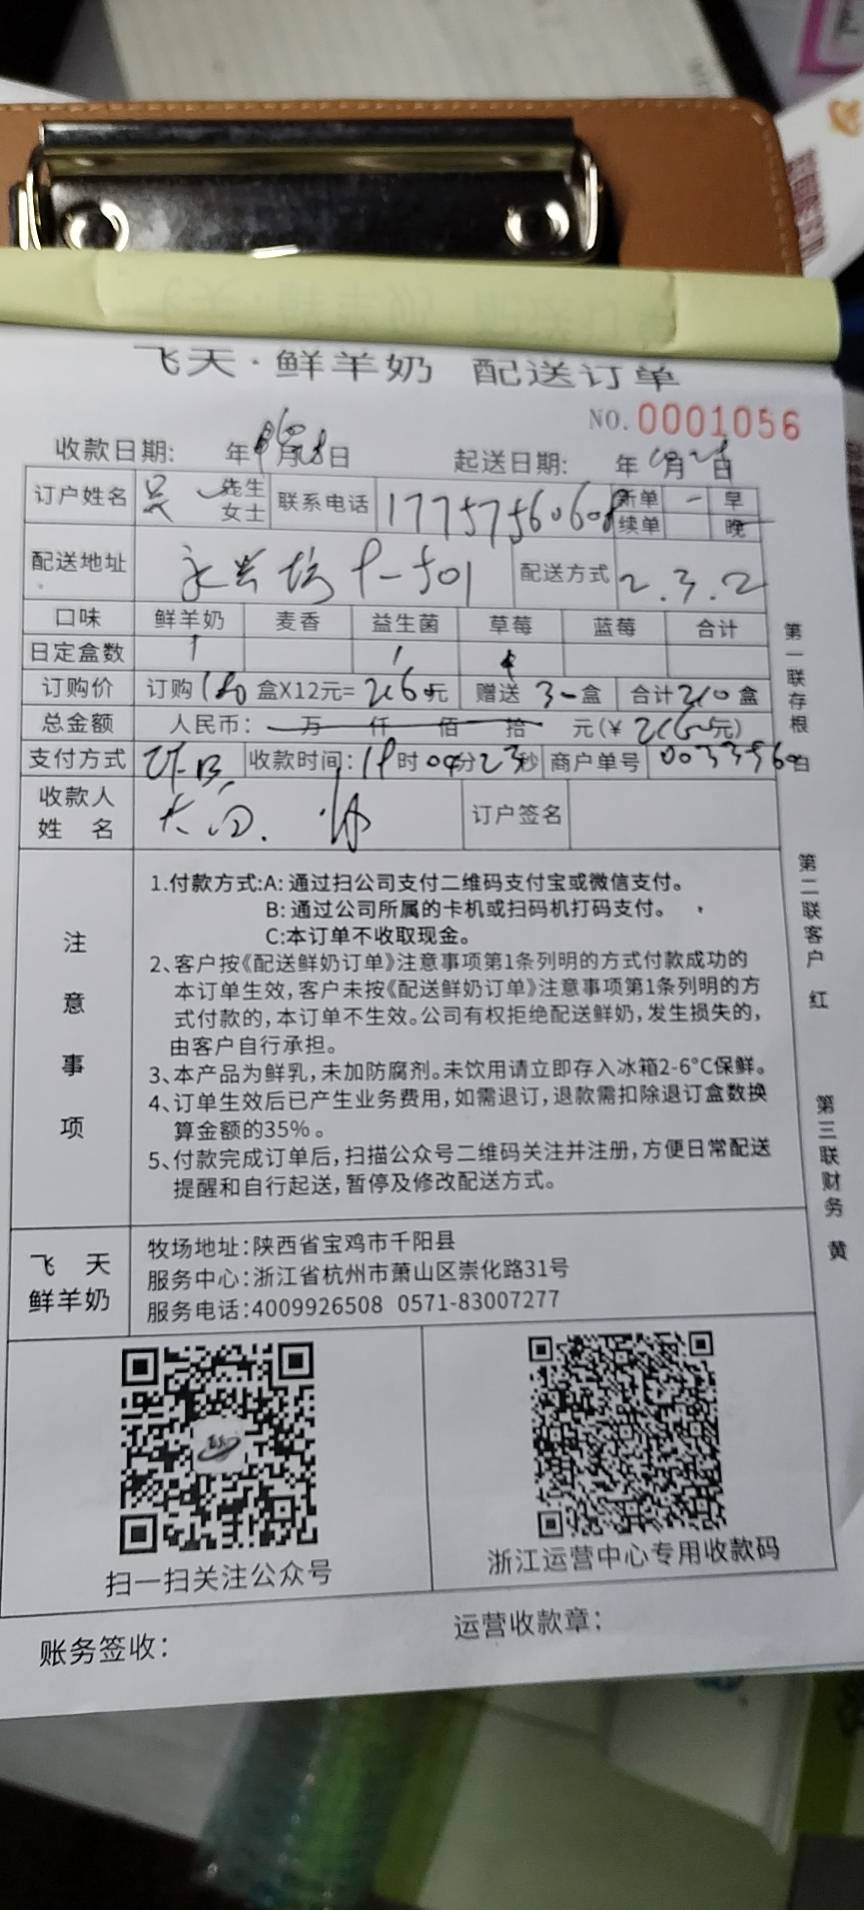 飞天·鲜羊奶 配送订单
NO.0001056
收款日期: 年 月 日 起送日期: 年 月 日
订户姓名 吴 先生 女士 联系电话 17757560608 新单 早
续单 晚
配送地址 永兴坊 501 配送方式 2.3.2
口味 鲜羊奶 麦香 益生菌 草莓 蓝莓 合计
日定盒数 1 1
订购价 订购180盒X12元=2160元 赠送 30盒 合计210盒
总金额 人民币: 万 仟 佰 拾 元(¥2160元)
支付方式 收款时间: 时 分23秒 商户单号
收款人 姓名 订户签名
注意事项
1.付款方式:A: 通过扫公司支付二维码支付宝或微信支付。
B: 通过公司所属的卡机或扫码机打码支付。
C:本订单不收取现金。
2、客户按《配送鲜奶订单》注意事项第1条列明的方式付款成功的
本订单生效,客户未按《配送鲜奶订单》注意事项第1条列明的方
式付款的,本订单不生效。公司有权拒绝配送鲜奶,发生损失的,
由客户自行承担。
3、本产品为鲜乳,未加防腐剂。未饮用请立即存入冰箱2-6°C保鲜。
4、订单生效后已产生业务费用,如需退订,退款需扣除退订盒数换
算金额的35%。
5、付款完成订单后,扫描公众号二维码关注并注册,方便日常配送
提醒和自行起送,暂停及修改配送方式。
飞天
鲜羊奶
牧场地址:陕西省宝鸡市千阳县
服务中心:浙江省杭州市萧山区崇化路31号
服务电话:4009926508 0571-83007277
扫一扫关注公众号
浙江运营中心专用收款码
账务签收:
运营收款章:
第一联存根 白
第二联客户 红
第三联财务 黄